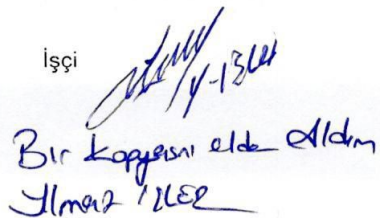 İşçi
Y-İZLER
Bir kopyasını elden Aldım
Yılmaz İZLER